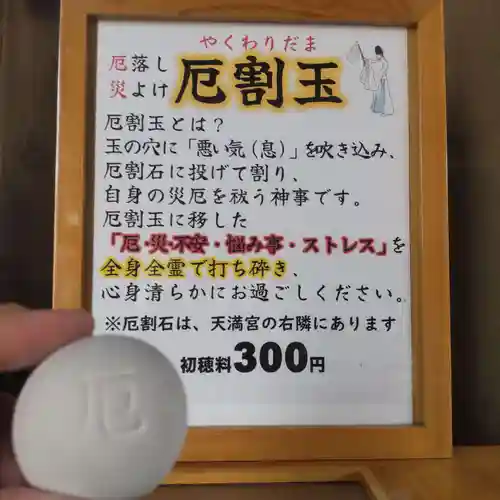 やくわりだま
厄落し
災よけ
厄割玉
厄割玉とは？
玉の穴に「悪い気（息）」を吹き込み、
厄割石に投げて割り、
自身の災厄を祓う神事です。
厄割玉に移した
「厄・災・不安・悩み事・ストレス」を
全身全霊で打ち砕き、
心身清らかにお過ごしください。
※厄割石は、天満宮の右隣にあります
初穂料300円
厄